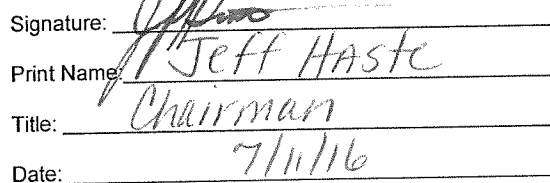 Signature:
Print Name: Jeff Haste
Title: Chairman
Date: 7/11/16